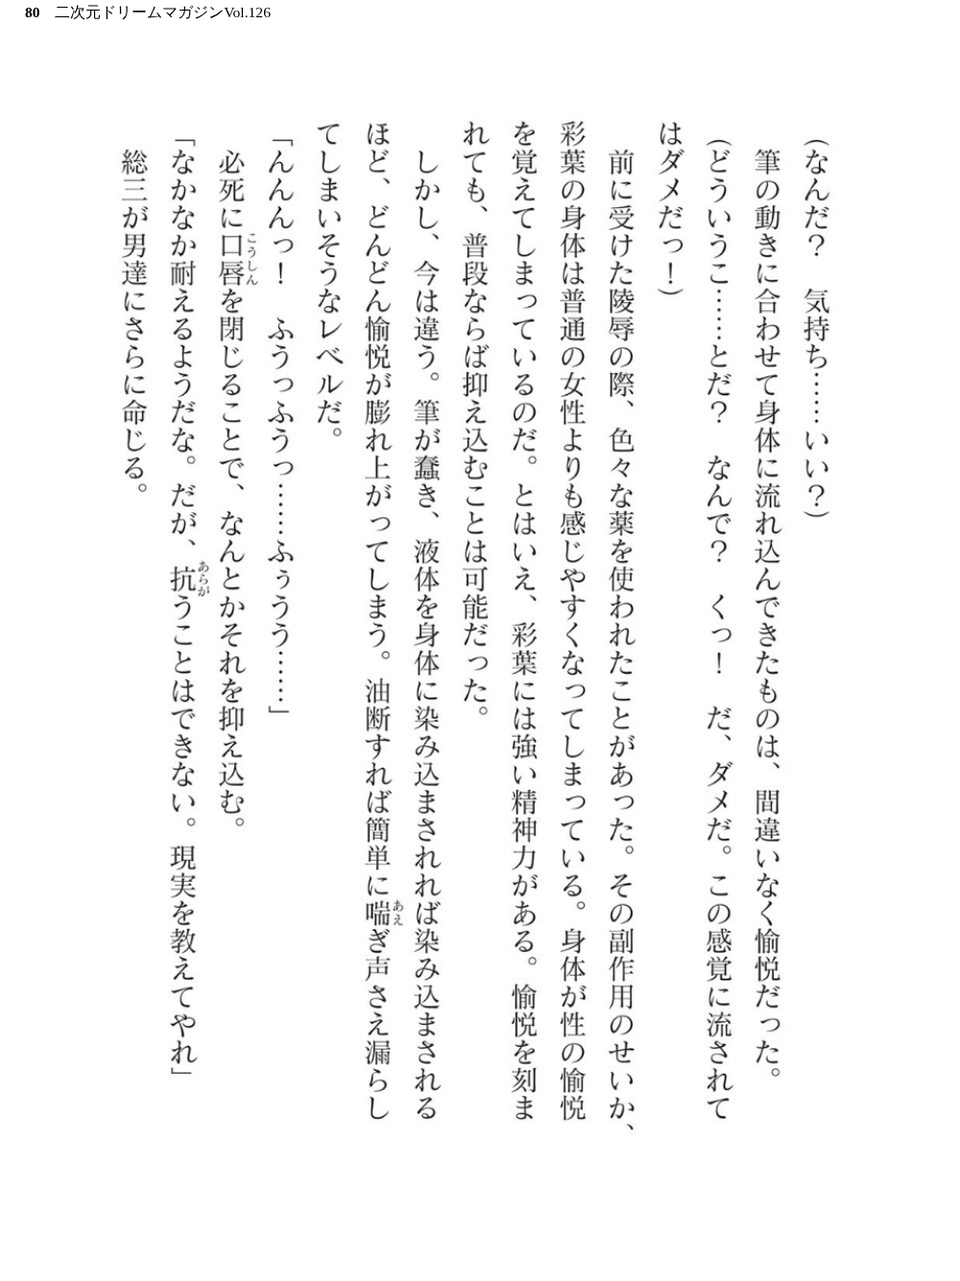 80 二次元ドリームマガジンVol.126
（なんだ？　気持ち……いい？）
　筆の動きに合わせて身体に流れ込んできたものは、間違いなく愉悦だった。
（どういうこ……とだ？　なんで？　くっ！　だ、ダメだ。この感覚に流されて
はダメだっ！）
　前に受けた陵辱の際、色々な薬を使われたことがあった。その副作用のせいか、
彩葉の身体は普通の女性よりも感じやすくなってしまっている。身体が性の愉悦
を覚えてしまっているのだ。とはいえ、彩葉には強い精神力がある。愉悦を刻ま
れても、普段ならば抑え込むことは可能だった。
　しかし、今は違う。筆が蠢き、液体を身体に染み込まされれば染み込まされる
ほど、どんどん愉悦が膨れ上がってしまう。油断すれば簡単に喘あえぎ声さえ漏らし
てしまいそうなレベルだ。
「んんんっ！　ふうっふうっ……ふぅうう……」
　必死に口唇こうしんを閉じることで、なんとかそれを抑え込む。
「なかなか耐えるようだな。だが、抗あらがうことはできない。現実を教えてやれ」
　総三が男達にさらに命じる。